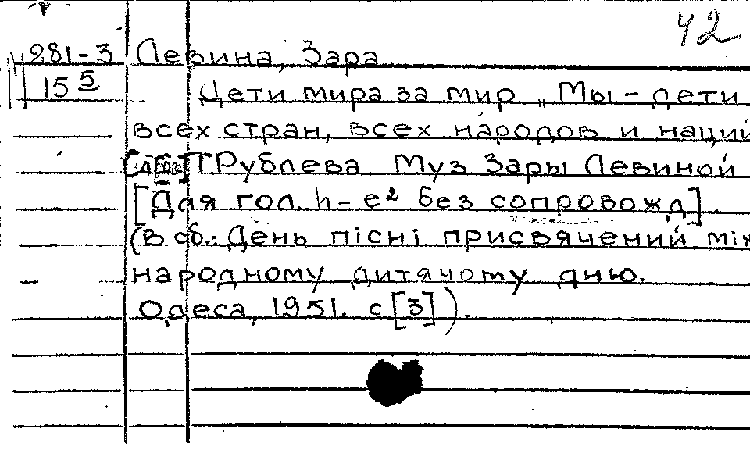 42
281-3 Левина, Зара
15 5 Дети мира за мир „Мы – дети
всех стран, всех народов и наций
Рублева Муз Зары Левиной
[Для гол. h – e² без сопровожд]
(в сб.: День пісні присвячений між
народному дитячому дню.
Одеса, 1951. с [3]).